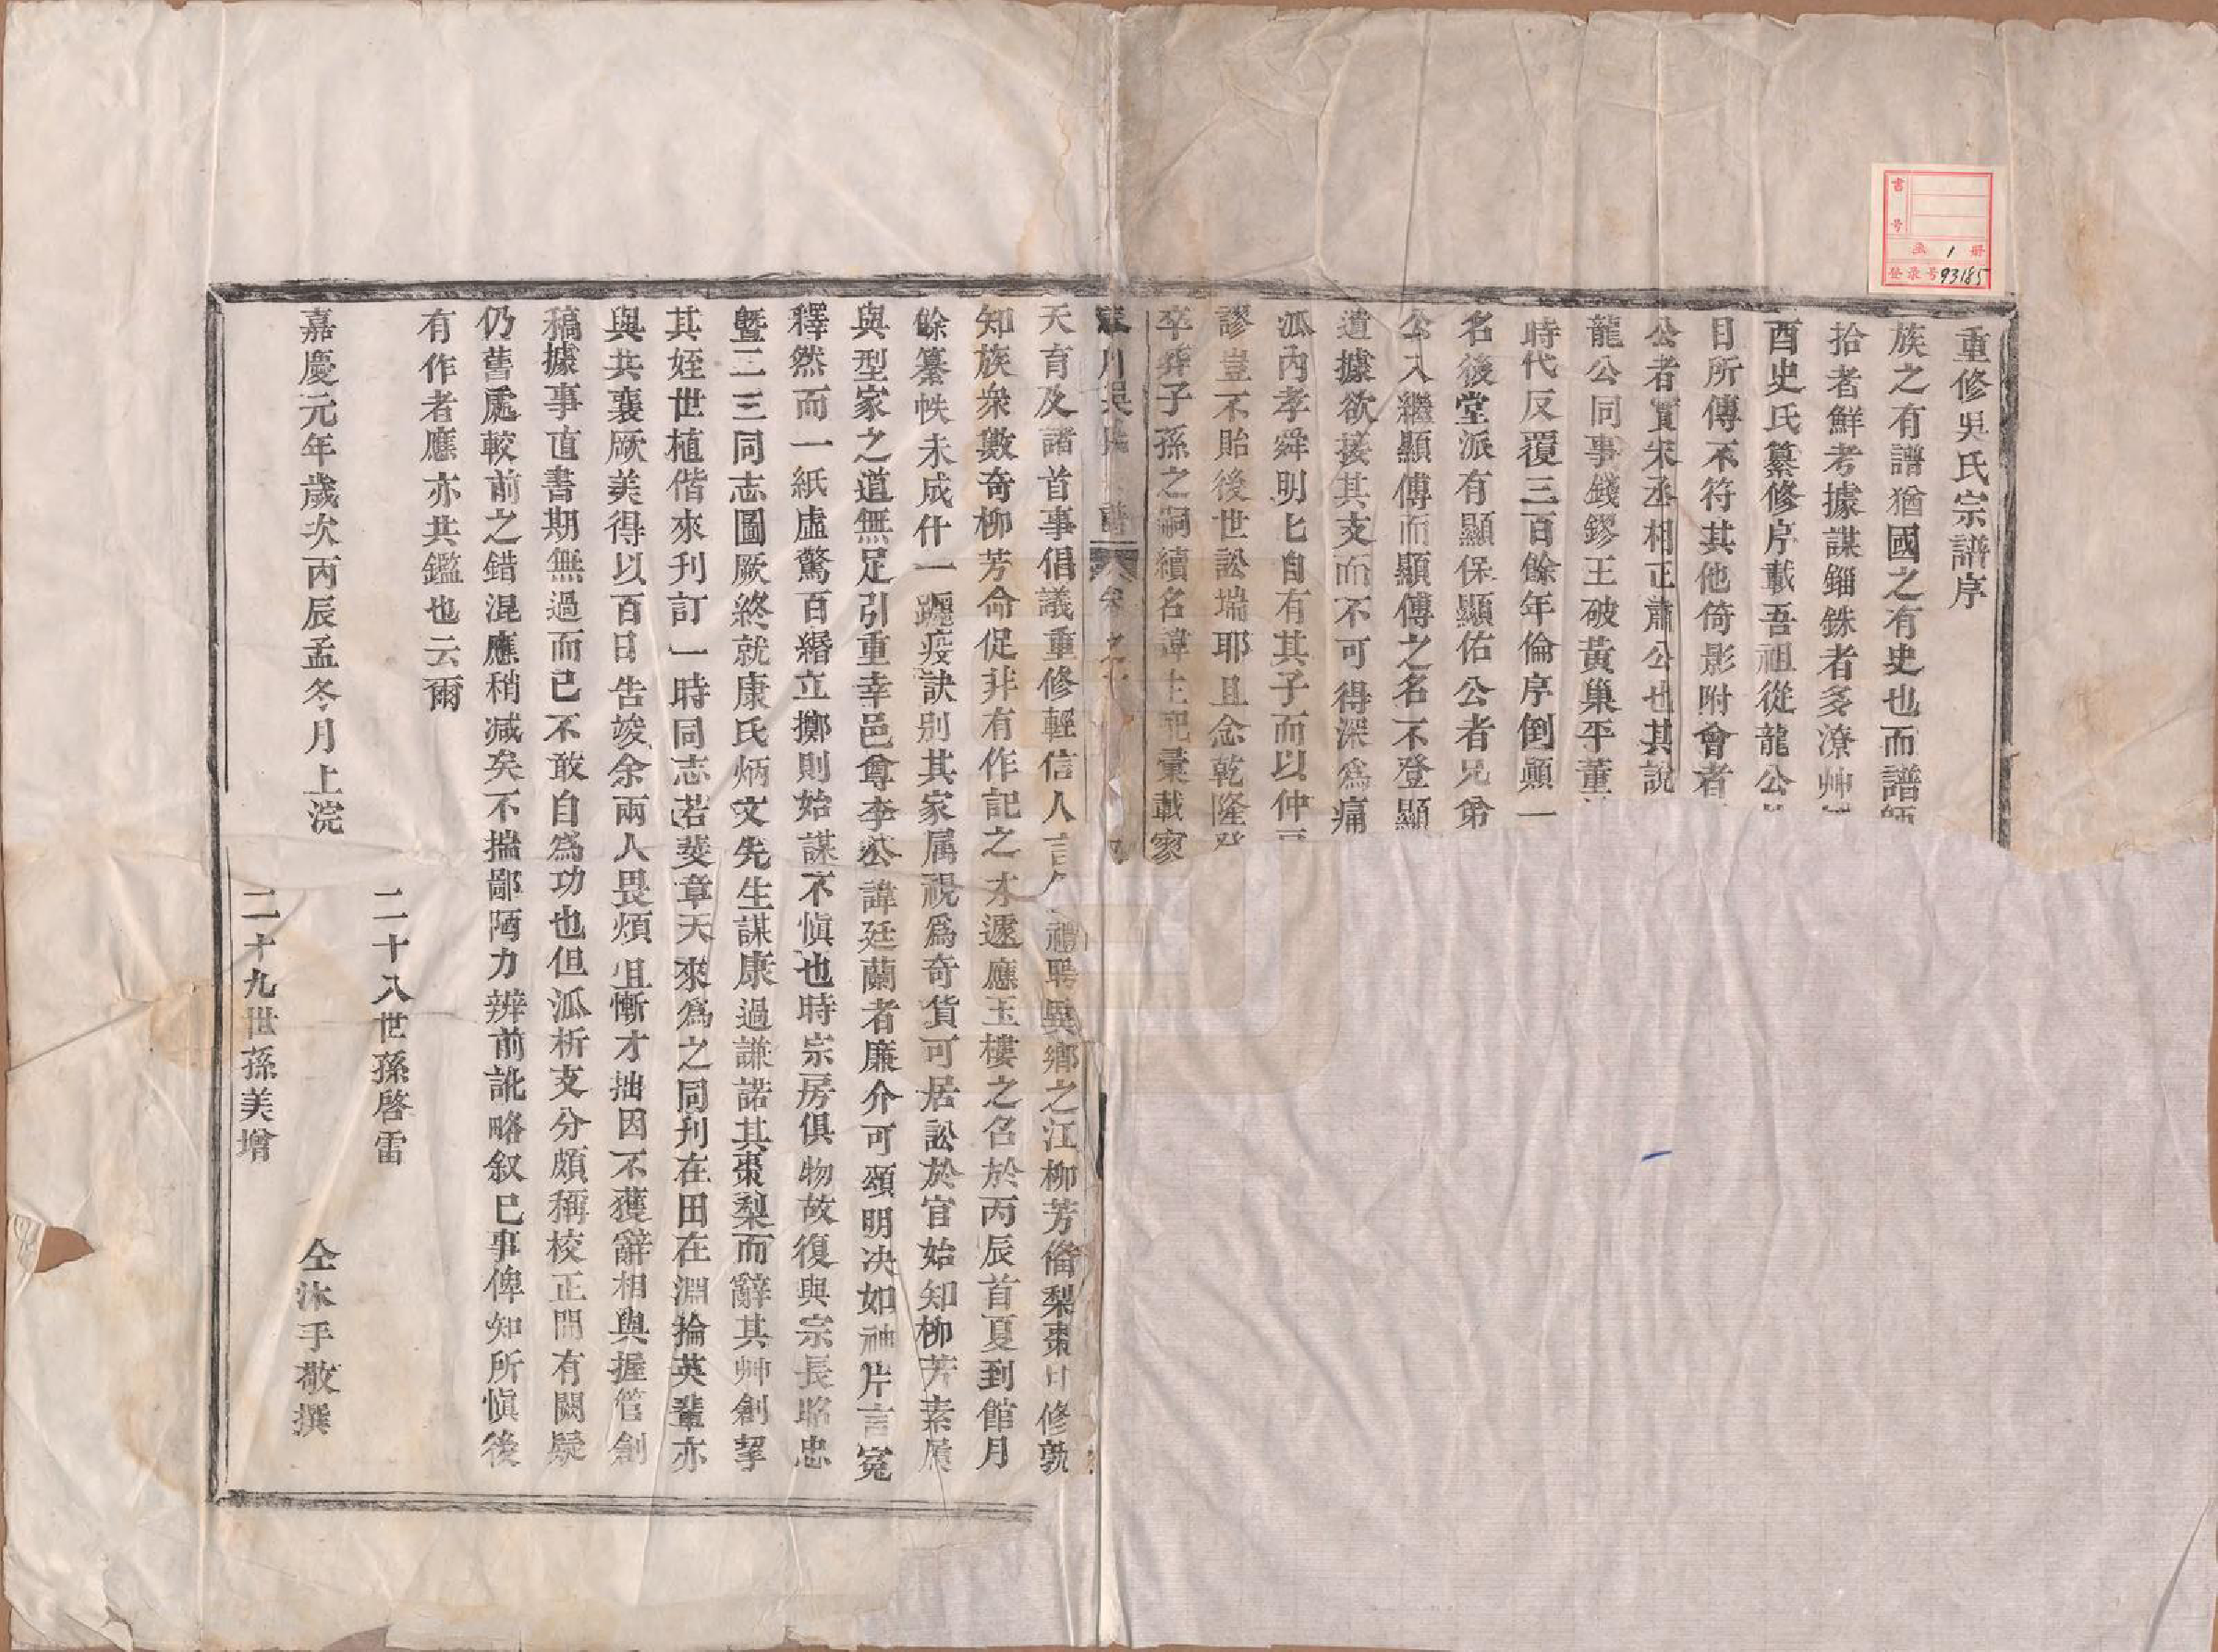 重修吳氏宗譜序
族之有譜猶國之有史也而譜
拾者鮮考據謀錙銖者多潦艸
酉史氏纂修序載吾祖從龍公
目所傳不符其他倚影附會者
公者實宋丞相正肅公也其說
龍公同事錢鏐王破黃巢平董
時代反覆三百餘年倫序倒顛一
名後堂派有顯保顯佑公者兄弟
公入繼顯傅而顯傅之名不登顯
遺據欲接其支而不可得深爲痛
派內孝舜明七自有其子而以仲
謬豈不貽後世訟端耶且念乾隆
卒葬子孫之嗣續名諱生兠彙載家
川吳氏 譜 卷之
天育及諸首事倡議重修輕信人言 禮聘異鄉之江柳芳脩梨棗 修敦
知族衆數奇柳芳命促非有作記之才遽應玉樓之名於丙辰首夏到館月
餘纂帙未成什一躔疫訣別其家属視爲奇貨可居訟於官始知柳芳素
與型家之道無足引重幸邑尊李公諱廷蘭者廉介可頌明决如神片言冤
釋然而一紙虛驚百緡立擲則始謀不愼也時宗房俱物故復與宗長昭忠
曁二三同志圖厥終就康氏炳文先生謀康過謙諾其棗梨而辭其艸創挈
其姪世植偕來刋訂一時同志若斐章天來爲之同刋在田在淵掄英輩亦
與共襄厥美得以百日告竣余兩人畏煩且慚才拙因不獲辭相與握管創
稿據事直書期無過而已不敢自爲功也但派析支分頗稱校正間有闕疑
仍舊處較前之錯混應稍减矣不揣鄙陋力辨前訛略叙已事俾知所愼後
有作者應亦共鑑也云爾
二十八世孫啓雷
嘉慶元年歲次丙辰孟冬月上浣 仝沐手敬撰
二十九世孫美增
书号
函 1 册
登录号 93185